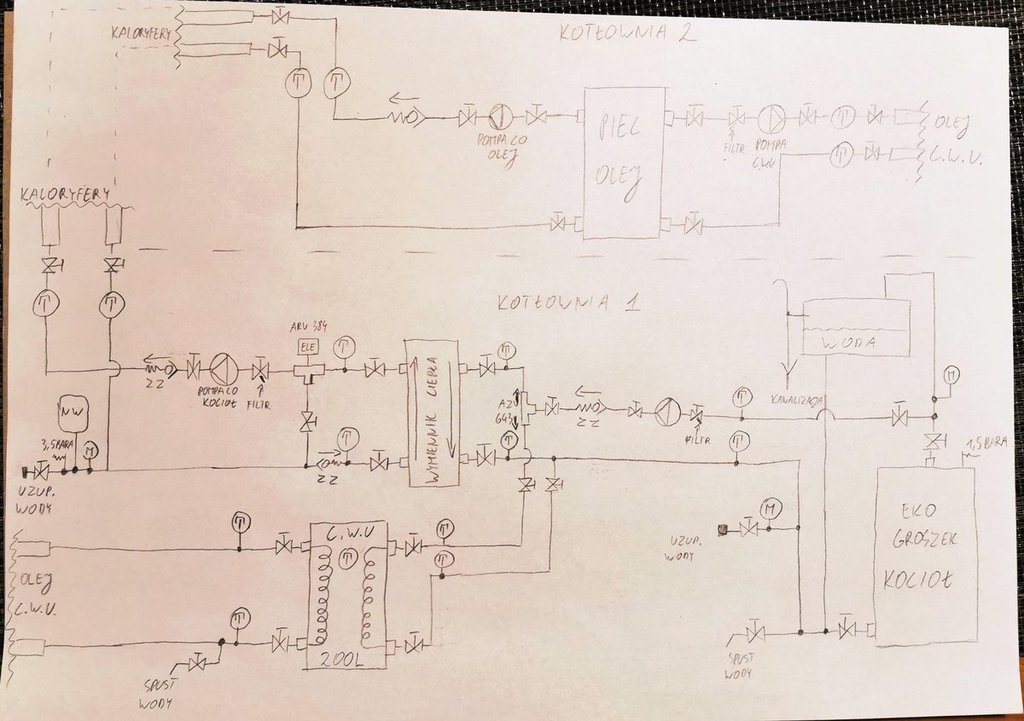 KOTŁOWNIA 2
KALORYFERY
T
T
POMPA CO
OLEJ
PIEC
OLEJ
FILTR
POMPA
C.W.U
T
T
OLEJ
C.W.U.
KALORYFERY
T
T
KOTŁOWNIA 1
ARV 384
ELE
T
ZZ
POMPA CO
KOCIOŁ
FILTR
NW
3,5BARA
M
UZUP.
WODY
T
ZZ
WYMIENNIK CIEPŁA
T
AZV
643
T
ZZ
FILTR
T
T
WODA
KANALIZACJA
M
1,5BARA
EKO
GROSZEK
KOCIOŁ
UZUP.
WODY
M
SPUST
WODY
T
C.W.U
T
200L
T
T
OLEJ
C.W.U.
T
SPUST
WODY